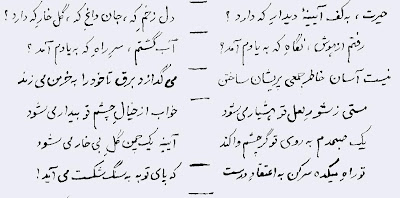 حیرت ، به کف آیینهٔ دیدارِ که دارد ؟ دل زخمِ که ، جان داغِ که ، گل خارِ که دارد ؟
رفتم از هوش ، نگاهِ که به یادم آمد ؟ آب گشتم ، سرِ راهِ که به یادم آمد ؟
نیست آسان خاطر جمعی پریشان ساختن می گدازد برق تا خود را به خرمن می زند
مستی ز شورِ لعل تو هشیار می شود خواب از خیالِ چشمِ تو بیدار می شود
یک صبحدم به روی تو گر چشم واکند آینهٔ یک چمن گلِ بی خار می شود
تو راهِ میکده سر کن به اعتقادِ درست که پای توبه به سنگِ شکست می آید !